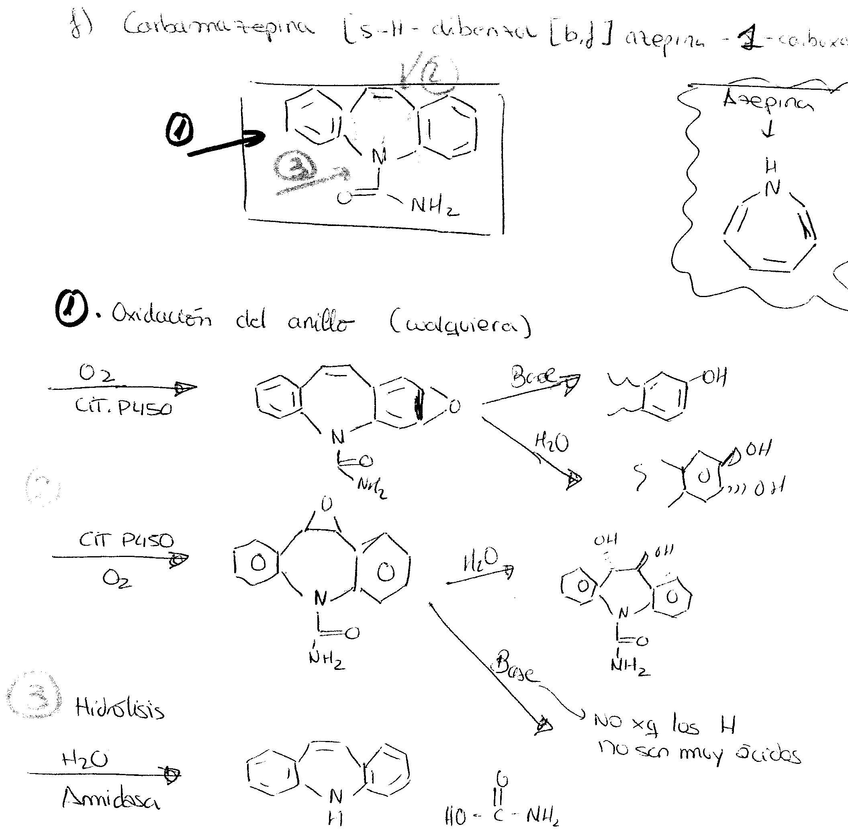 f) Carbamazepina [5-H-dibenzol [b,f] azepina-1-carboxa
√②
①
③
N
O
NH2
Azepina
H
N
①. Oxidación del anillo (cualquiera)
O2
CIT. P450
N
O
NH2
O
Base
OH
H2O
OH
OH
2
CIT P450
O2
O
N
O
NH2
H2O
OH
OH
N
O
NH2
Base
No xq los H
no son muy ácidos
③ Hidrólisis
H2O
Amidasa
N
H
O
HO-C-NH2